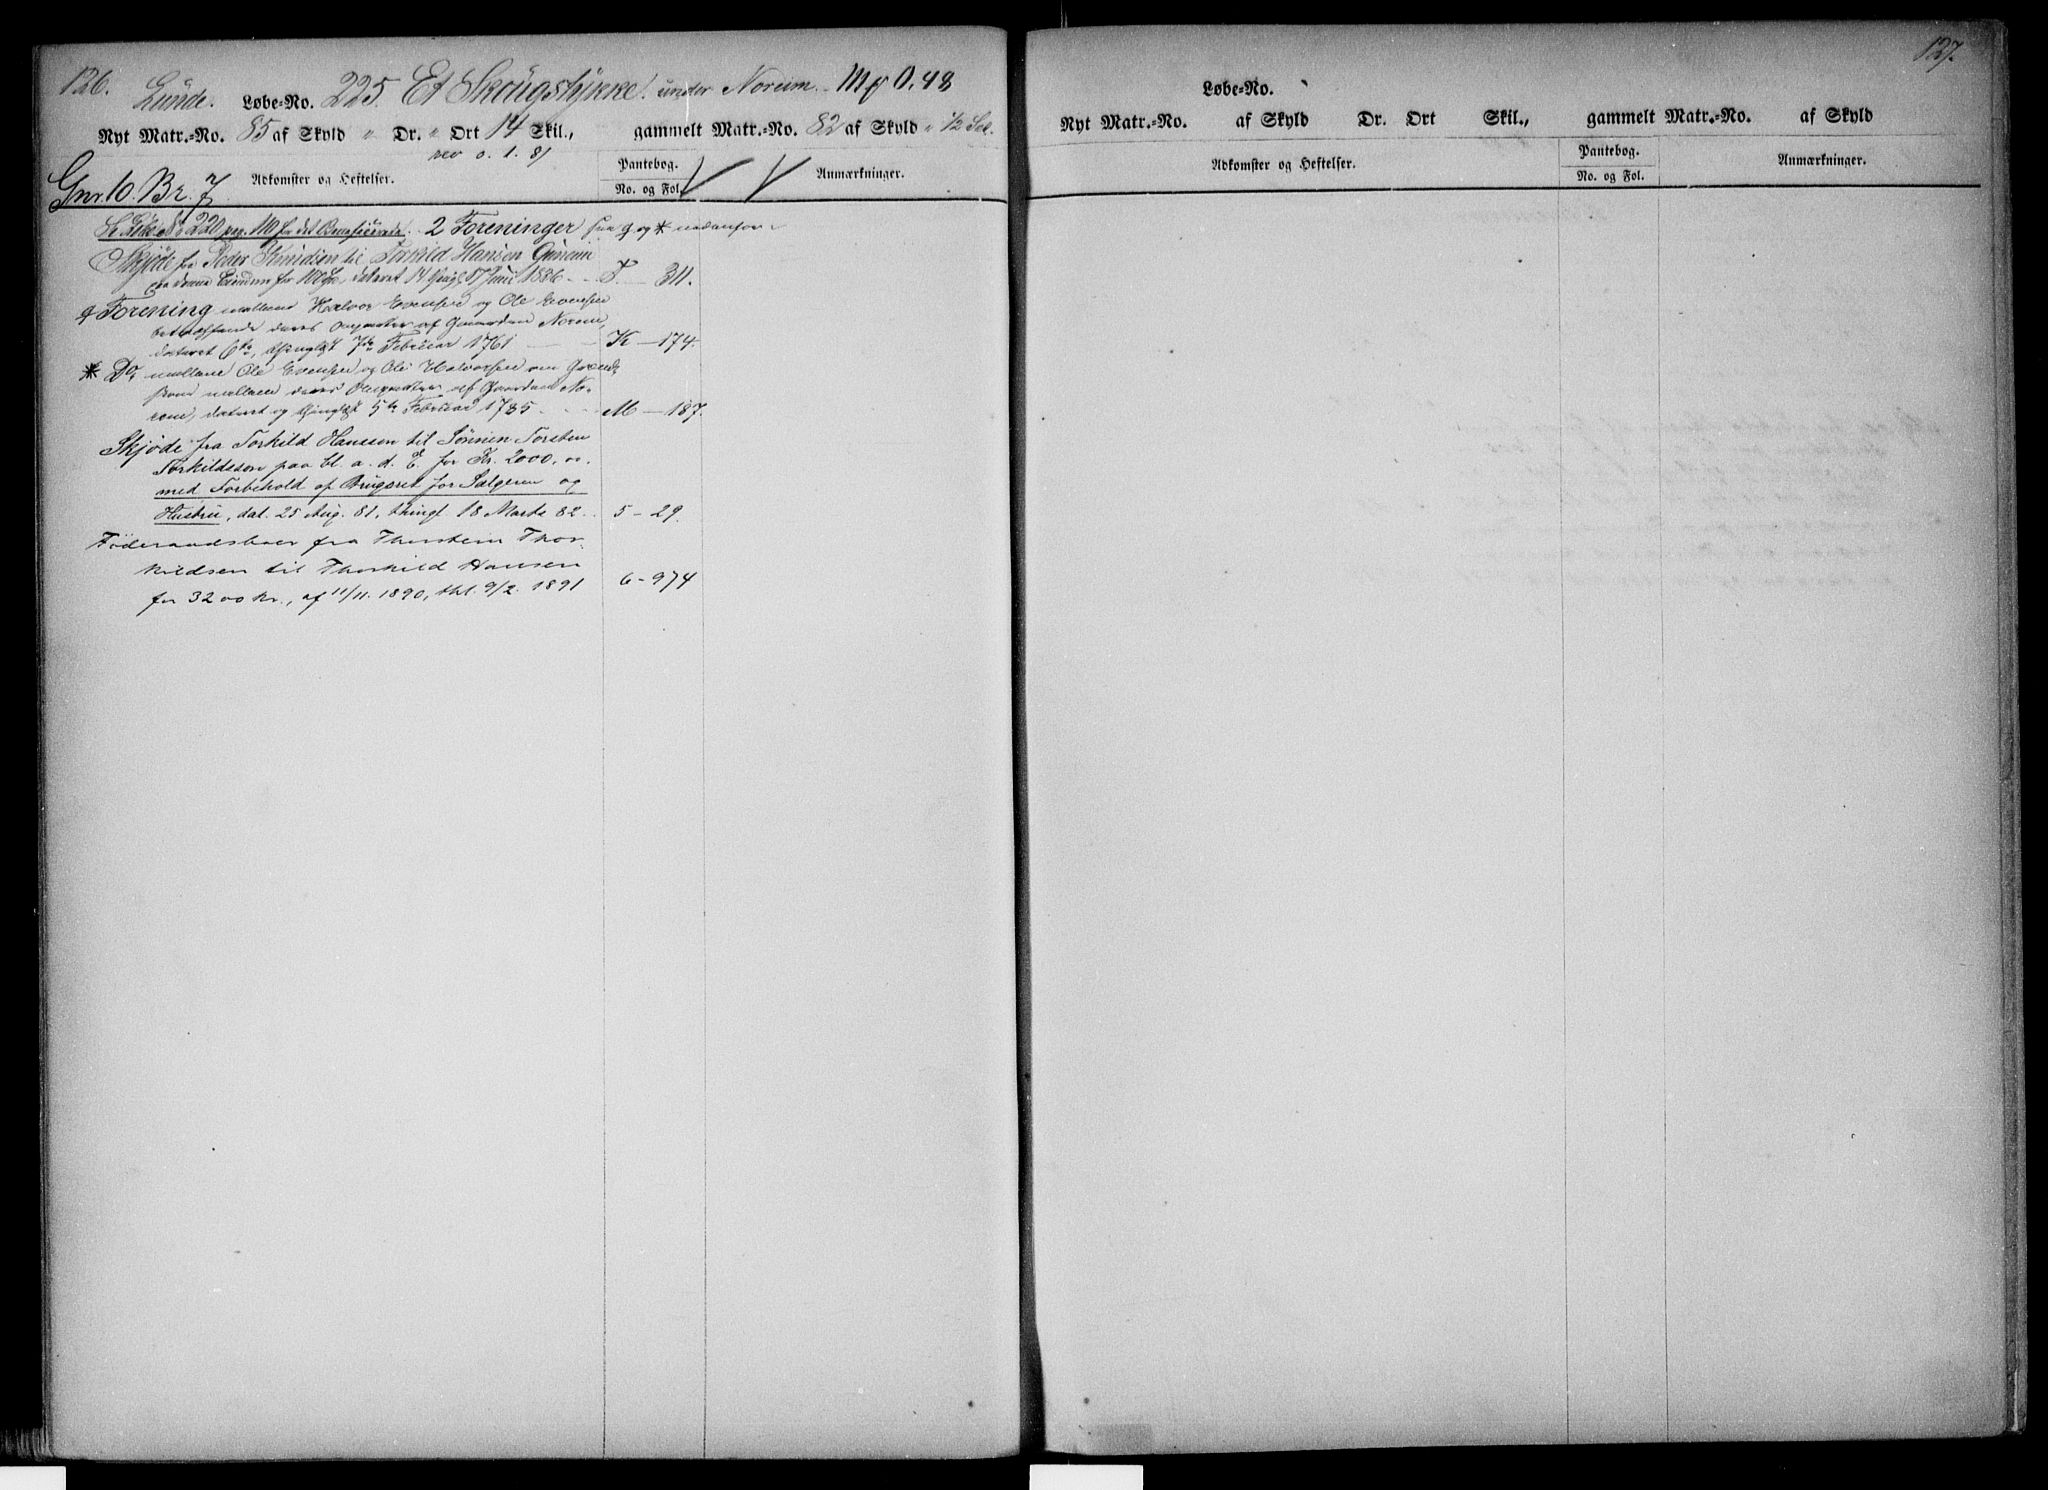 126.
Lunde. Løbe-No. 225. Et Skougstykke under Noreim. My 0,48
Nyt Matr.-No. 85 af Skyld " Dr. " Ort 14 Skil., gammelt Matr.-No. 82 af Skyld " 1/2 Sæl.
rev 0. 1. 81
Gnr. 10. Br. 7. Adkomster og Heftelser. Pantebog. Anmærkninger.
No. og Fol.
220 pag. 110 2 Foreninger og * nedenfor
Skjøde fra Peder Knudsen til Torkild Hansen
paa denne Eiendom for dateret 14 17 Juni 1836 - 311.
Forening mellem Halvor Evensen og Ole Evensen
betræffende deres Omgaatter af Gaarden Noreim,
dateret 6te, thinglæst 7de Februar 1761 K - 174.
* Do mellem Ole Evensen og Ole Halvorsen om
mellem deres af Gaarden No-
reim, dateret og thinglæst 5te Februar 1785 - M - 187.
Skjøde fra Torkild Hanssen til Sønnen Torsten
Torkildssøn paa bl. a. d. E. for Kr. 2000, "
med Forbehold af Brugsret for Sælgeren og
Hustru, dat. 25 Aug. 81, thingl. 18 Marts 82. 5 - 29.
Føderaadsbrev fra Thorstein Thor-
kildsen til Thorkild Hansen
for 3200 kr., af 11/11. 1890, thl. 9/2. 1891 6 - 974
127.
Løbe-No.
Nyt Matr.-No. af Skyld Dr. Ort Skil., gammelt Matr.-No. af Skyld
Adkomster og Heftelser. Pantebog. Anmærkninger.
No. og Fol.